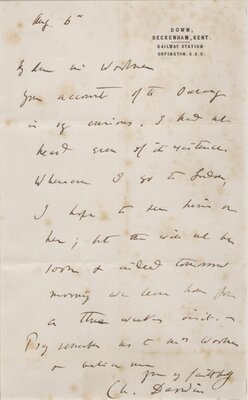 Aug. 6th
DOWN,
BECKENHAM, KENT.
RAILWAY STATION
ORPINGTON. S.E.R.
My dear Mr
Your account of the Ourang
is very curious. I had not
heard even of its existence.
Whenever I go to London,
I hope to see him or
her; but this will not be
soon & indeed tomorrow
morning we leave home for
a three weeks visit. —
Pray remember us to Mrs
&
yours very faithfully
Ch. Darwin